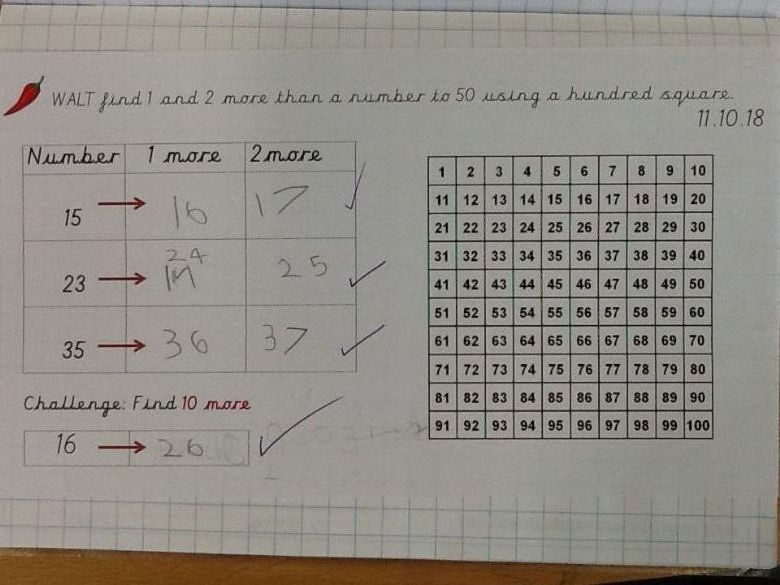 WALT find 1 and 2 more than a number to 50 using a hundred square.
11.10.18
Number 1 more 2 more
15 16 17
24
23 25
35 36 37
Challenge: Find 10 more
16 26
1 2 3 4 5 6 7 8 9 10
11 12 13 14 15 16 17 18 19 20
21 22 23 24 25 26 27 28 29 30
31 32 33 34 35 36 37 38 39 40
41 42 43 44 45 46 47 48 49 50
51 52 53 54 55 56 57 58 59 60
61 62 63 64 65 66 67 68 69 70
71 72 73 74 75 76 77 78 79 80
81 82 83 84 85 86 87 88 89 90
91 92 93 94 95 96 97 98 99 100